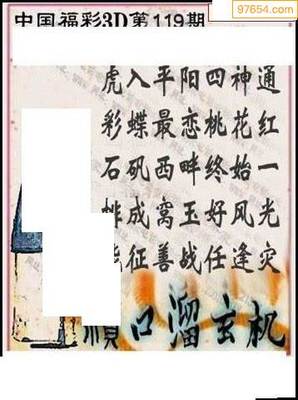 97654.com
中国福彩3D第119期
虎入平阳四神通
彩蝶最恋桃花红
石矶西畔终始一
成窝玉好风光
征善战任逢灾
口溜玄机